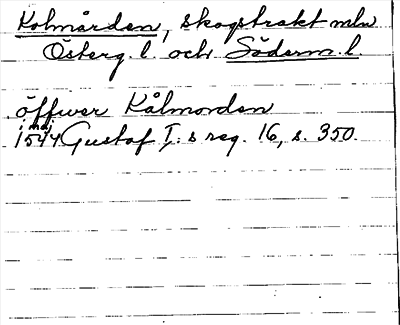 Kolmården, skogstrakt mln
Österg. l. och Söderm. l.
öffwer Kålmorden
i maj
1544 Gustaf I:s reg. 16, s. 350.